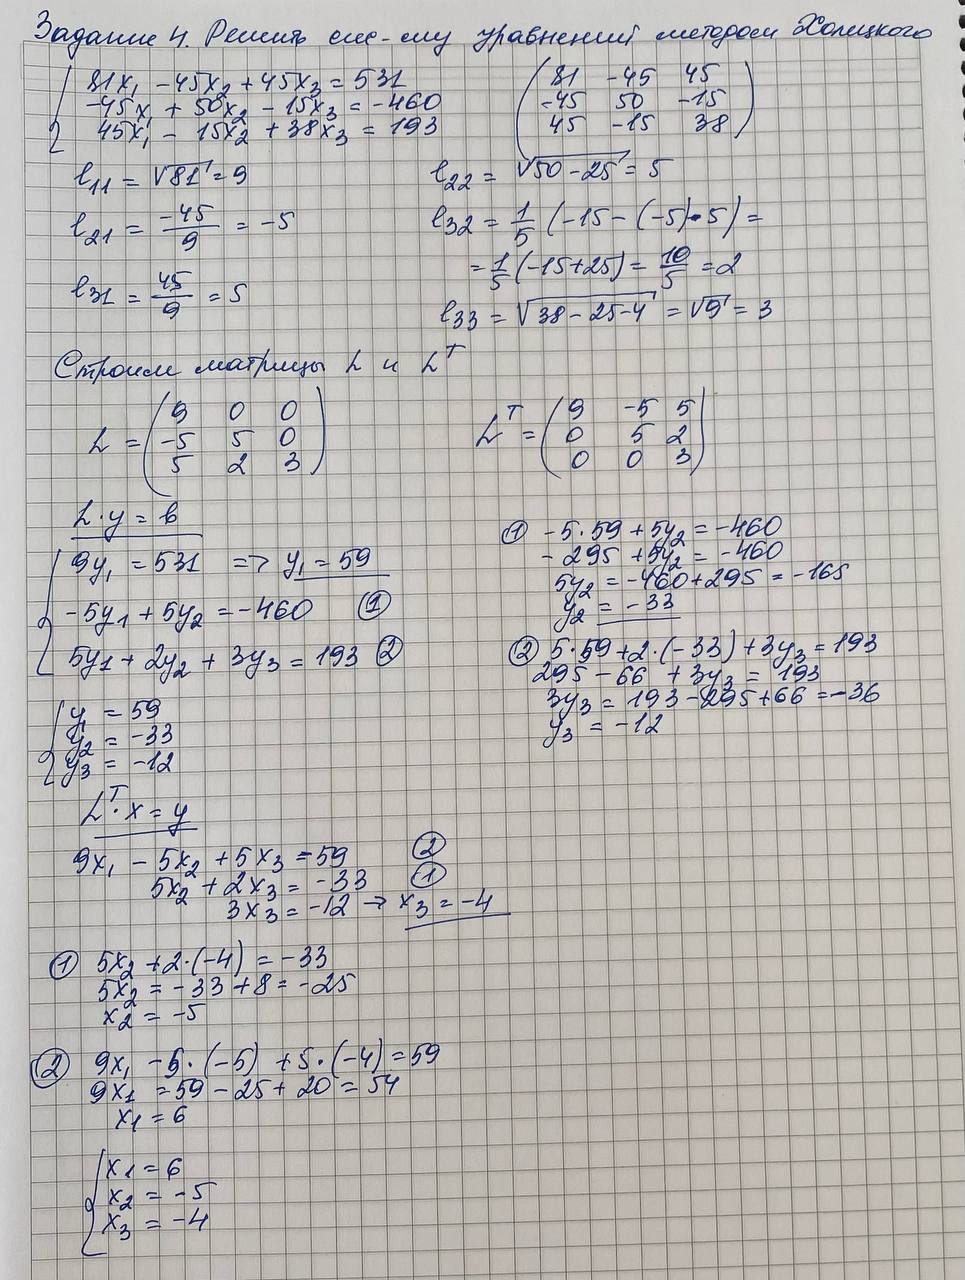 Задание 4. Решить сис-му уравнений методом Холецкого
81x₁ - 45x₂ + 45x₃ = 531
-45x₁ + 50x₂ - 15x₃ = -460
45x₁ - 15x₂ + 38x₃ = 193
81 -45 45
-45 50 -15
45 -15 38
l₁₁ = √81 = 9
l₂₁ = -45/9 = -5
l₃₁ = 45/9 = 5
l₂₂ = √50-25 = 5
l₃₂ = 1/5 (-15 - (-5)·5) =
= 1/5 (-15+25) = 10/5 = 2
l₃₃ = √38-25-4 = √9 = 3
Строим матрицы L и Lᵀ
L = (9 0 0
-5 5 0
5 2 3)
Lᵀ = (9 -5 5
0 5 2
0 0 3)
L·y = b
9y₁ = 531 => y₁ = 59
-5y₁ + 5y₂ = -460 ①
5y₁ + 2y₂ + 3y₃ = 193 ②
y₁ = 59
y₂ = -33
y₃ = -12
① -5·59 + 5y₂ = -460
-295 + 5y₂ = -460
5y₂ = -460+295 = -165
y₂ = -33
② 5·59+2·(-33)+3y₃ = 193
295 - 66 + 3y₃ = 193
3y₃ = 193-295+66 = -36
y₃ = -12
Lᵀ·x = y
9x₁ - 5x₂ + 5x₃ = 59 ②
5x₂ + 2x₃ = -33 ①
3x₃ = -12 → x₃ = -4
① 5x₂ + 2·(-4) = -33
5x₂ = -33 + 8 = -25
x₂ = -5
② 9x₁ - 5·(-5) + 5·(-4) = 59
9x₁ = 59 - 25 + 20 = 54
x₁ = 6
x₁ = 6
x₂ = -5
x₃ = -4